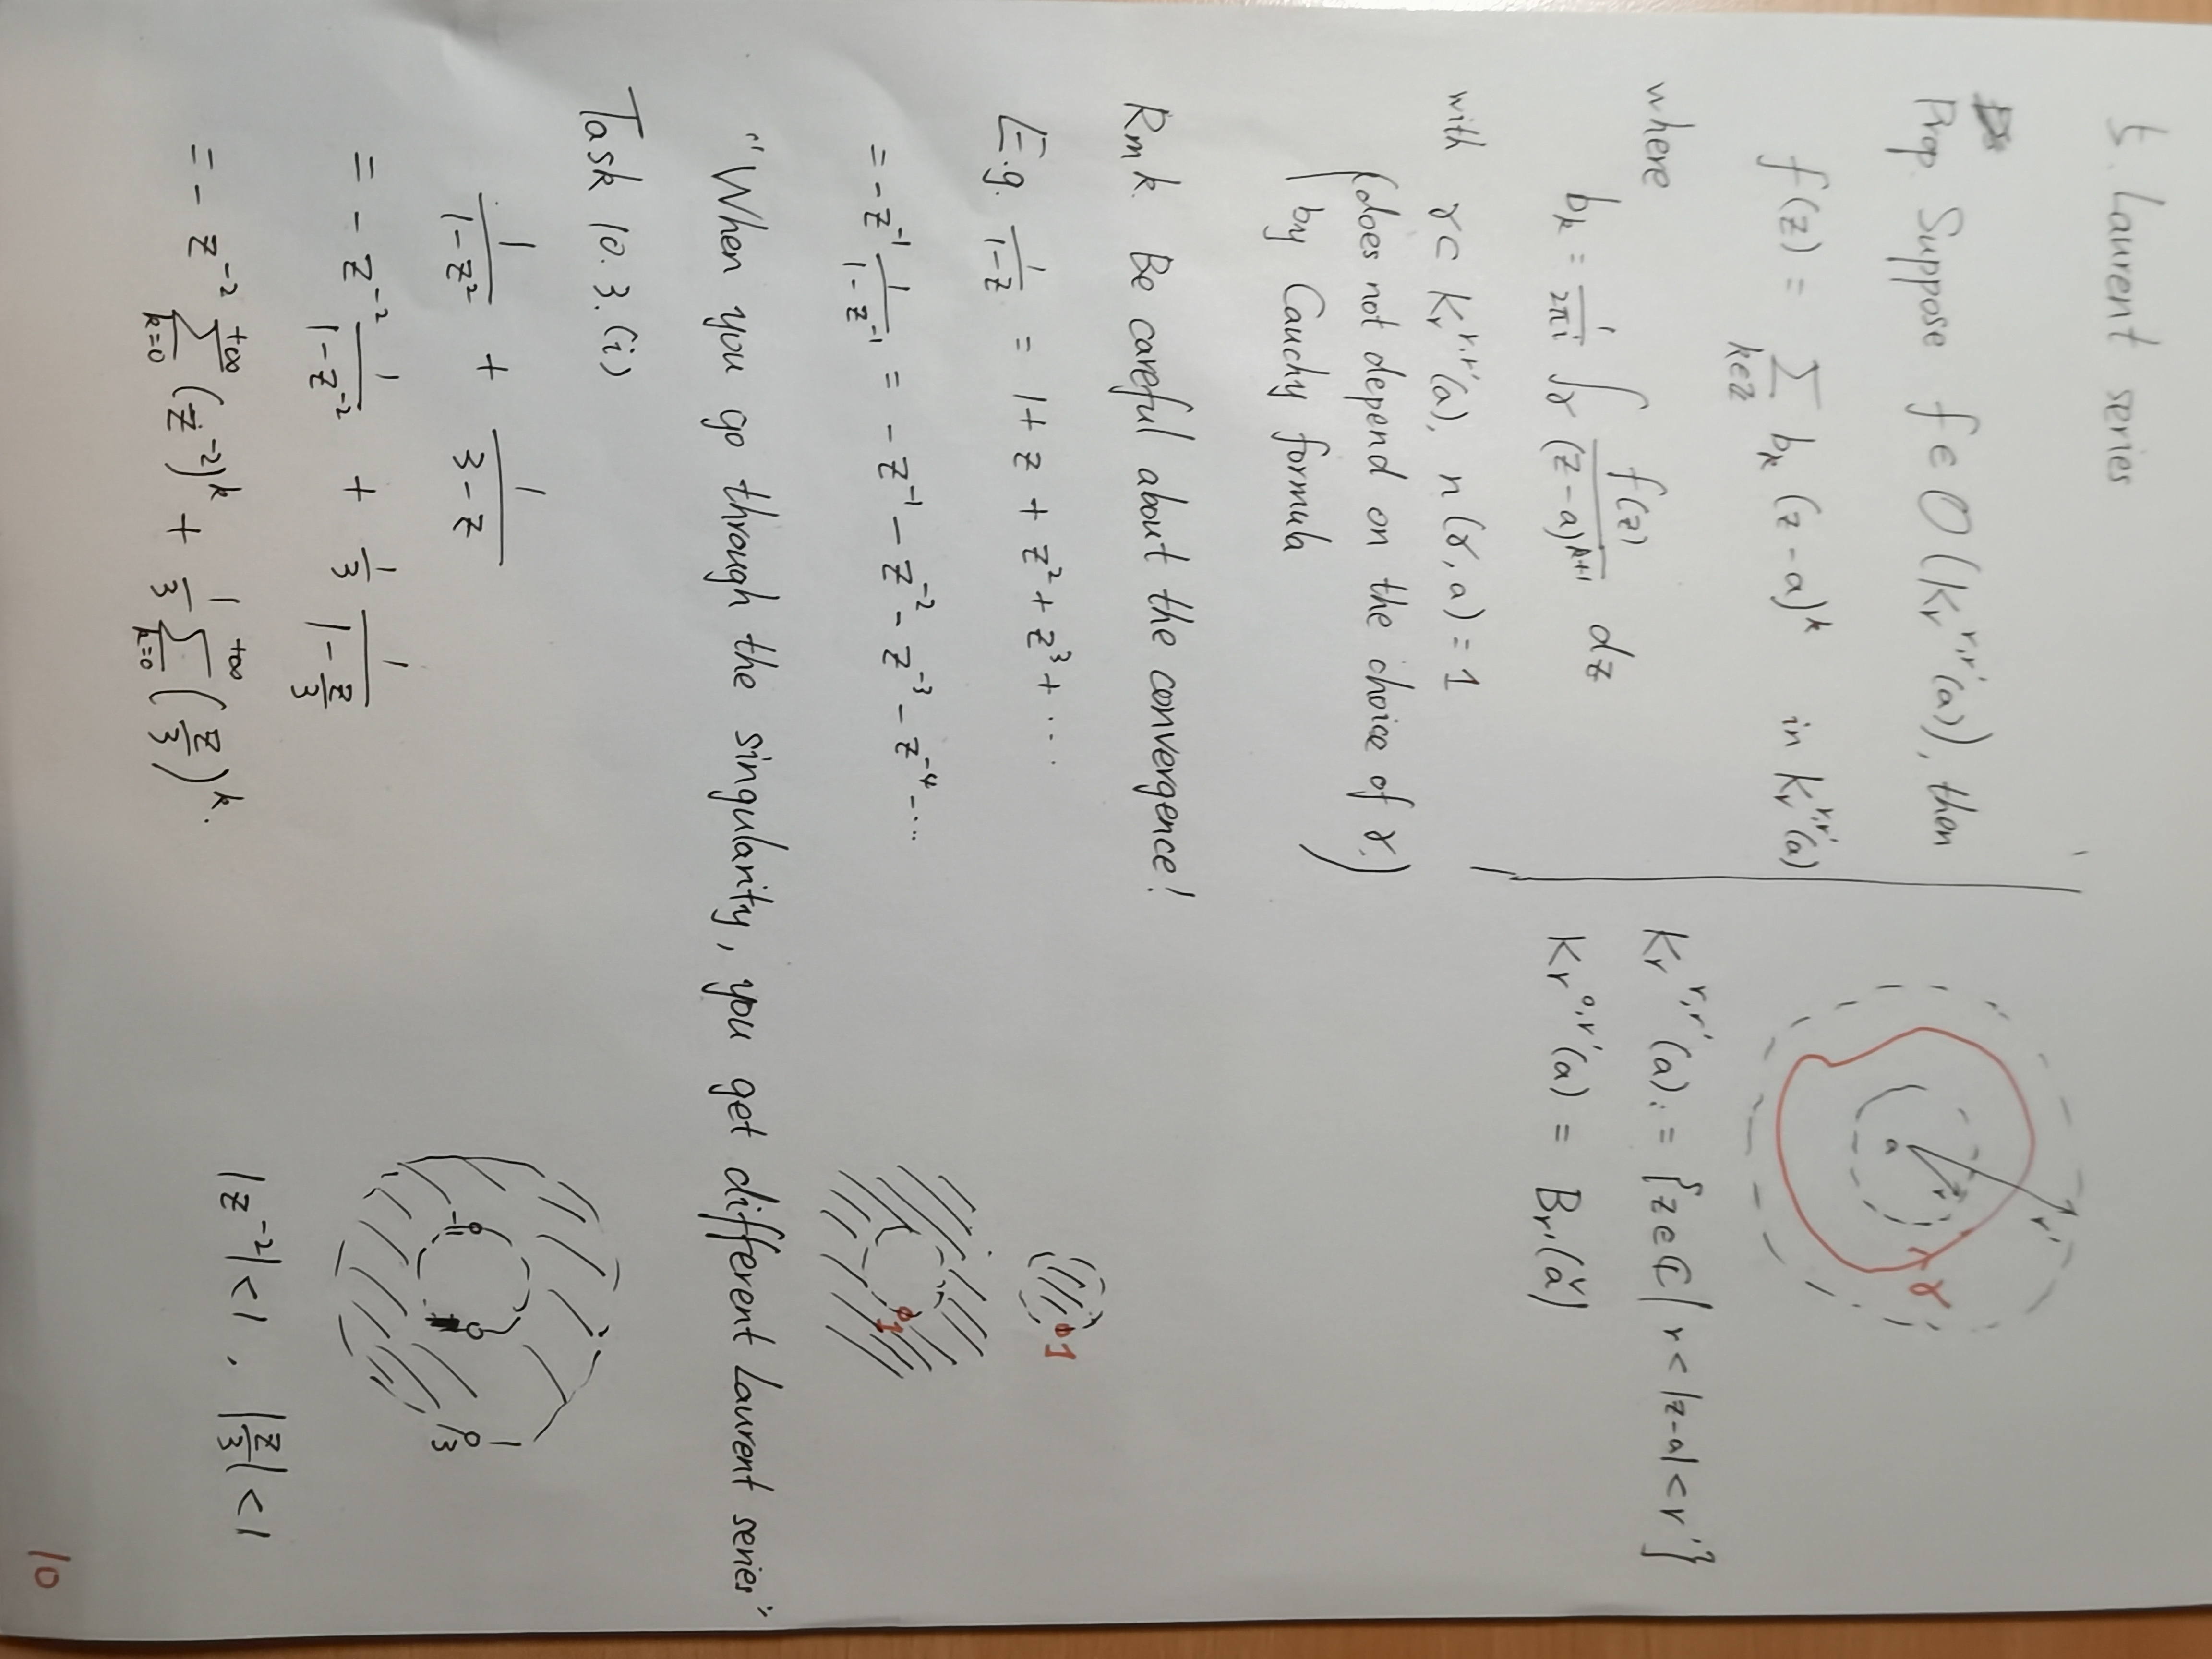 5. Laurent series
Prop. Suppose f ∈ O(Kr^{r,r'}(a)), then
f(z) = ∑_{k∈ℤ} b_k (z-a)^k in Kr^{r,r'}(a)
where
b_k = \frac{1}{2πi} ∫_γ \frac{f(z)}{(z-a)^{k+1}} dz
with γ ⊂ Kr^{r,r'}(a), n(γ, a) = 1
(does not depend on the choice of γ,
by Cauchy formula)
r'
r
a
γ
Kr^{r,r'}(a) := {z ∈ ℂ | r < |z-a| < r'}
Kr^{0,r'}(a) = B_{r'}(ǎ)
Rmk. Be careful about the convergence!
E.g. \frac{1}{1-z} = 1 + z + z^2 + z^3 + ⋯
1
= -z^{-1} \frac{1}{1-z^{-1}} = -z^{-1} - z^{-2} - z^{-3} - z^{-4} - ⋯
1
"When you go through the singularity, you get different Laurent series"
Task 10.3.(i)
\frac{1}{1-z^2} + \frac{1}{3-z}
= -z^{-2} \frac{1}{1-z^{-2}} + \frac{1}{3} \frac{1}{1-\frac{z}{3}}
= -z^{-2} ∑_{k=0}^{+∞} (z^{-2})^k + \frac{1}{3} ∑_{k=0}^{+∞} (\frac{z}{3})^k.
-1
3
|z^{-2}| < 1, |\frac{z}{3}| < 1
10